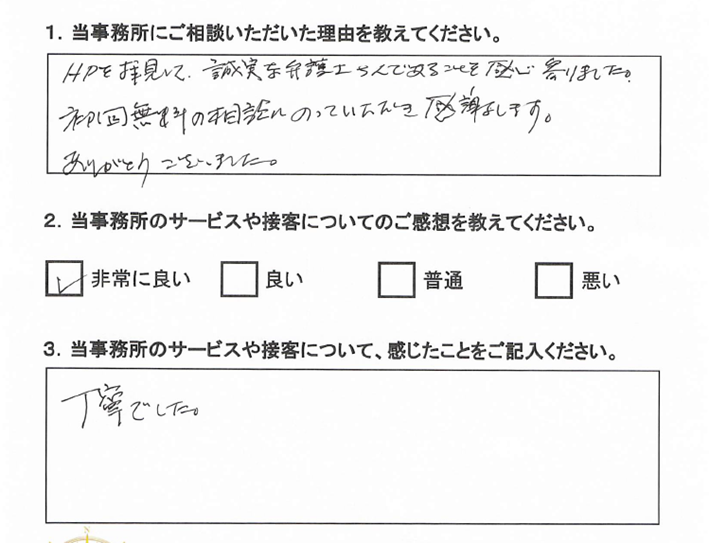 1. 当事務所にご相談いただいた理由を教えてください。
HPを拝見して、誠実な弁護士さんであることを感じ寄りました。
初回無料の相談にのっていただき感謝します。
ありがとうございました。
2. 当事務所のサービスや接客についてのご感想を教えてください。
非常に良い 良い 普通 悪い
3. 当事務所のサービスや接客について、感じたことをご記入ください。
丁寧でした。
N